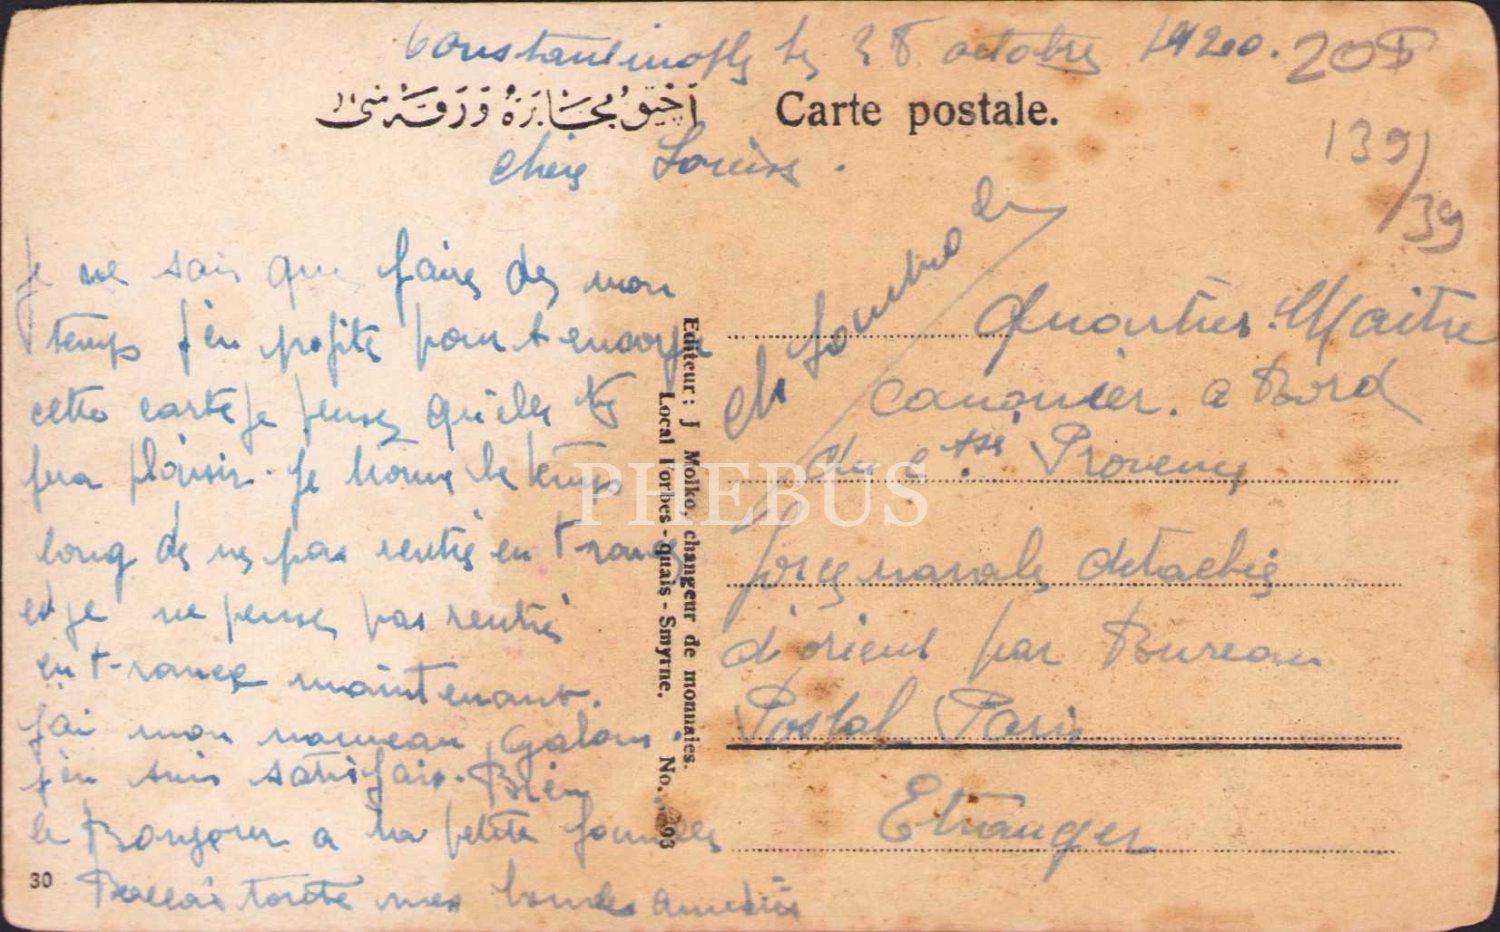 Constantinople le 28 octobre 1920. 20₺
Carte postale.
139/39
Chère Louise.
Je ne sais que faire de mon
temps j'en profite pour t'envoyer
cette carte je pense qu'elle te
fera plaisir. Je trouve le temps
long de ne pas rentré en France
et je ne pense pas rentré
en France maintenant.
J'ai mon nouveau Galon.
j'en suis satisfait. Bien
le Bonjour a ta petite famille
toute mes
30
Editeur: J Moiko, changeur de monnaies.
Local Forbes - quais - Smyrne. No.
Quartier. Maitre
canonier. a Bord
du Provence
Forces navale détachée
d'orient par Bureau
Postal Paris
Etranger
PHEBUS